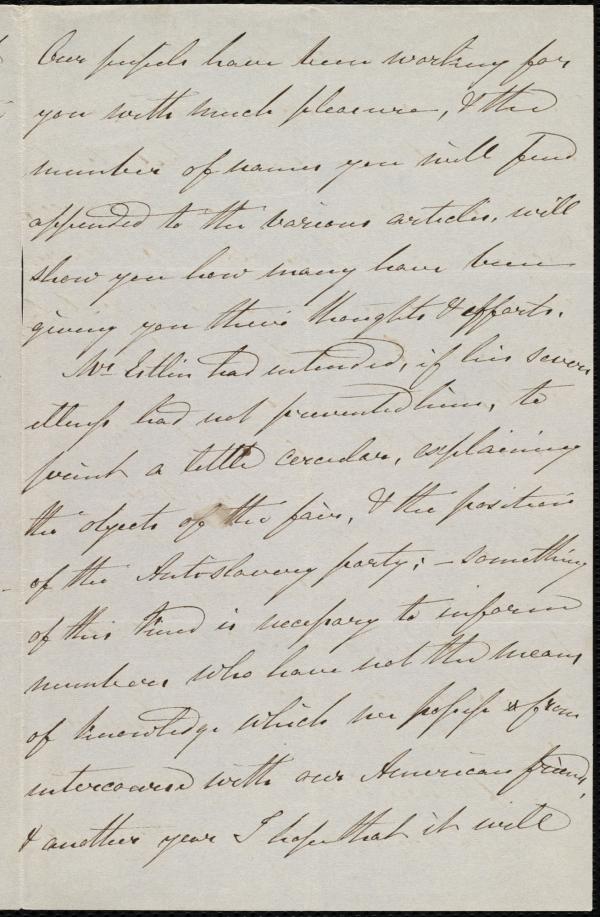 Our pupils have been working for
you with much pleasure, & the
number of names you will find
appended to the various articles, will
show you how many have been
giving you their thoughts & efforts.
Mr Estlin had intended, if his severe
illness had not prevented him, to
print a little circular, explaining
the objects of the fair, & the position
of the Antislavery party; - something
of this kind is necessary to inform
numbers who have not the means
of knowledge which we possess from
intercourse with our American friends,
& another year I hope that it will